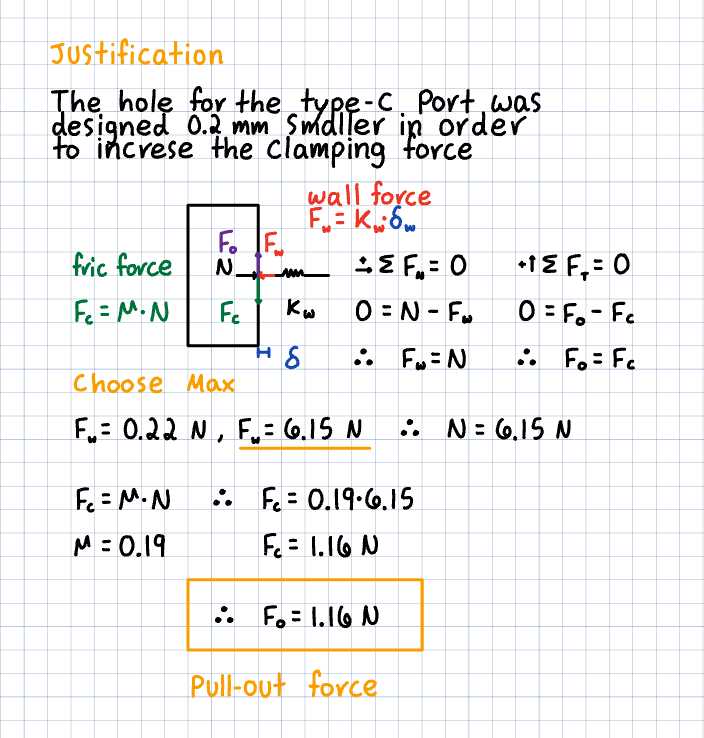 Justification
The hole for the type-C Port was
designed 0.2 mm Smaller in order
to increse the Clamping force
wall force
F_w = K_w · δ_w
F_o F_w
fric force N →+ Σ F_N = 0 +↑ Σ F_T = 0
F_c = M · N F_c K_w 0 = N - F_w 0 = F_o - F_c
δ ∴ F_w = N ∴ F_o = F_c
Choose Max
F_w = 0.22 N , F_w = 6.15 N ∴ N = 6.15 N
F_c = M · N ∴ F_c = 0.19 · 6.15
M = 0.19 F_c = 1.16 N
∴ F_o = 1.16 N
Pull-out force